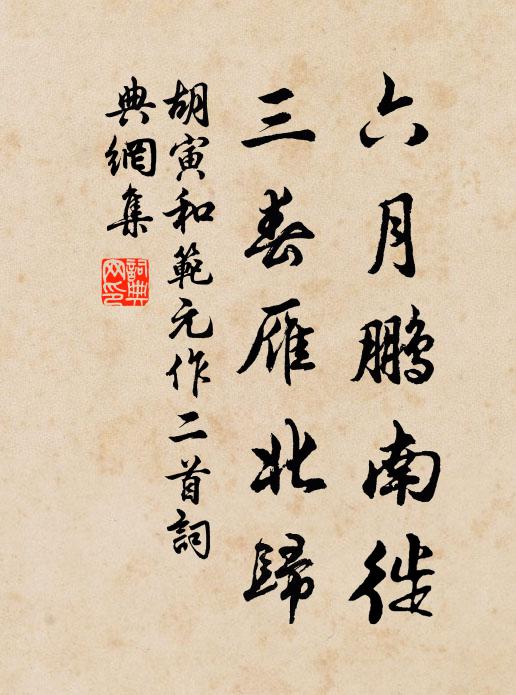 六月鹏南徙
三春雁北歸
胡寅和範元作二首詞
典網集
詞典網印